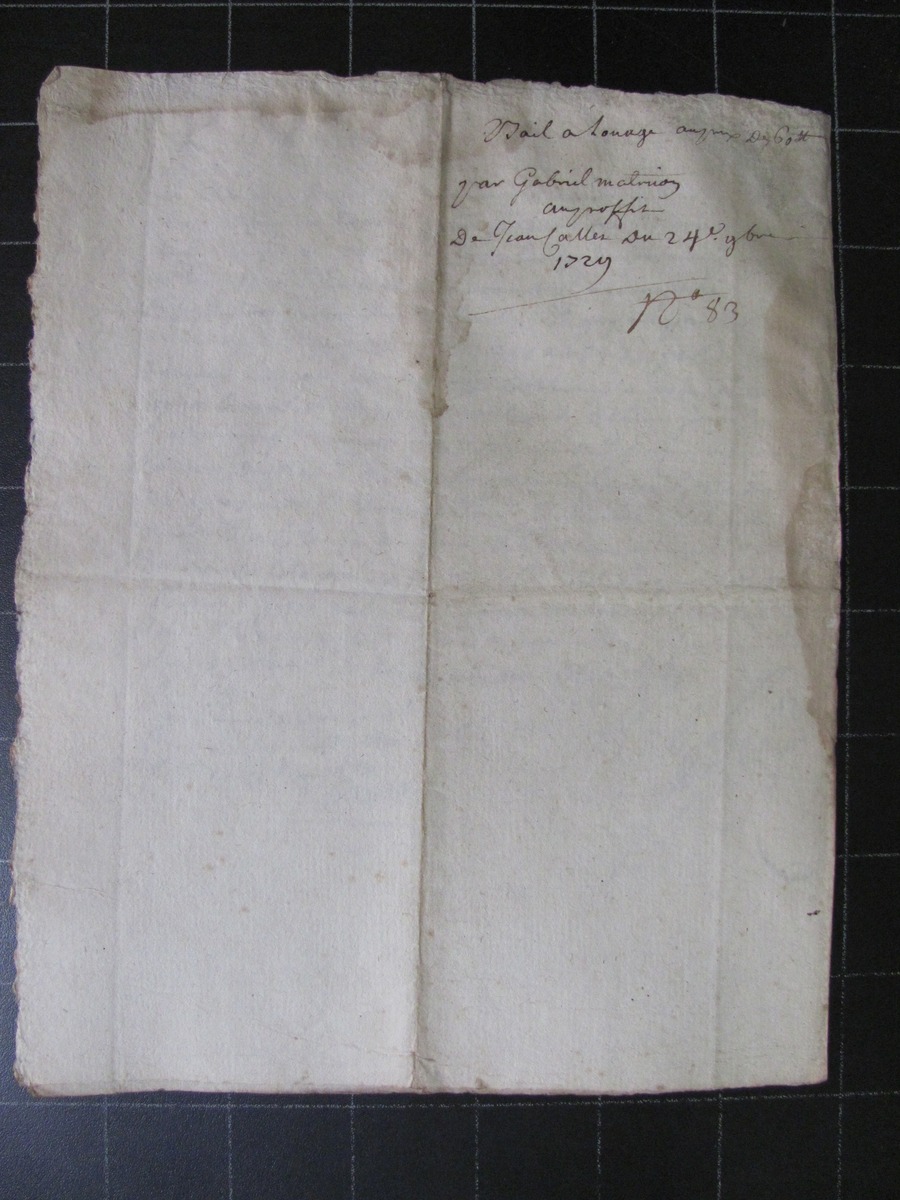 Bail a Louage au prix De 60 tt
par Gabriel matrion
au proffit
De Jean Calles Du 24e. 9bre
1729
No 83